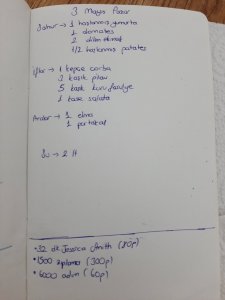 3 Mayıs Pazar
Sahur → 1 haşlanmış yumurta
1 domates
2 dilim ekmek
1/2 haşlanmış patates
İftar → 1 kepçe çorba
3 kaşık pilav
5 kaşık kuru fasulye
1 kase salata
Aralar → 1 elma
1 portakal
Su → 2 lt
• 32 dk Jessica Smith (80p)
• 1500 zıplama (300p)
• 6000 adım (60p)